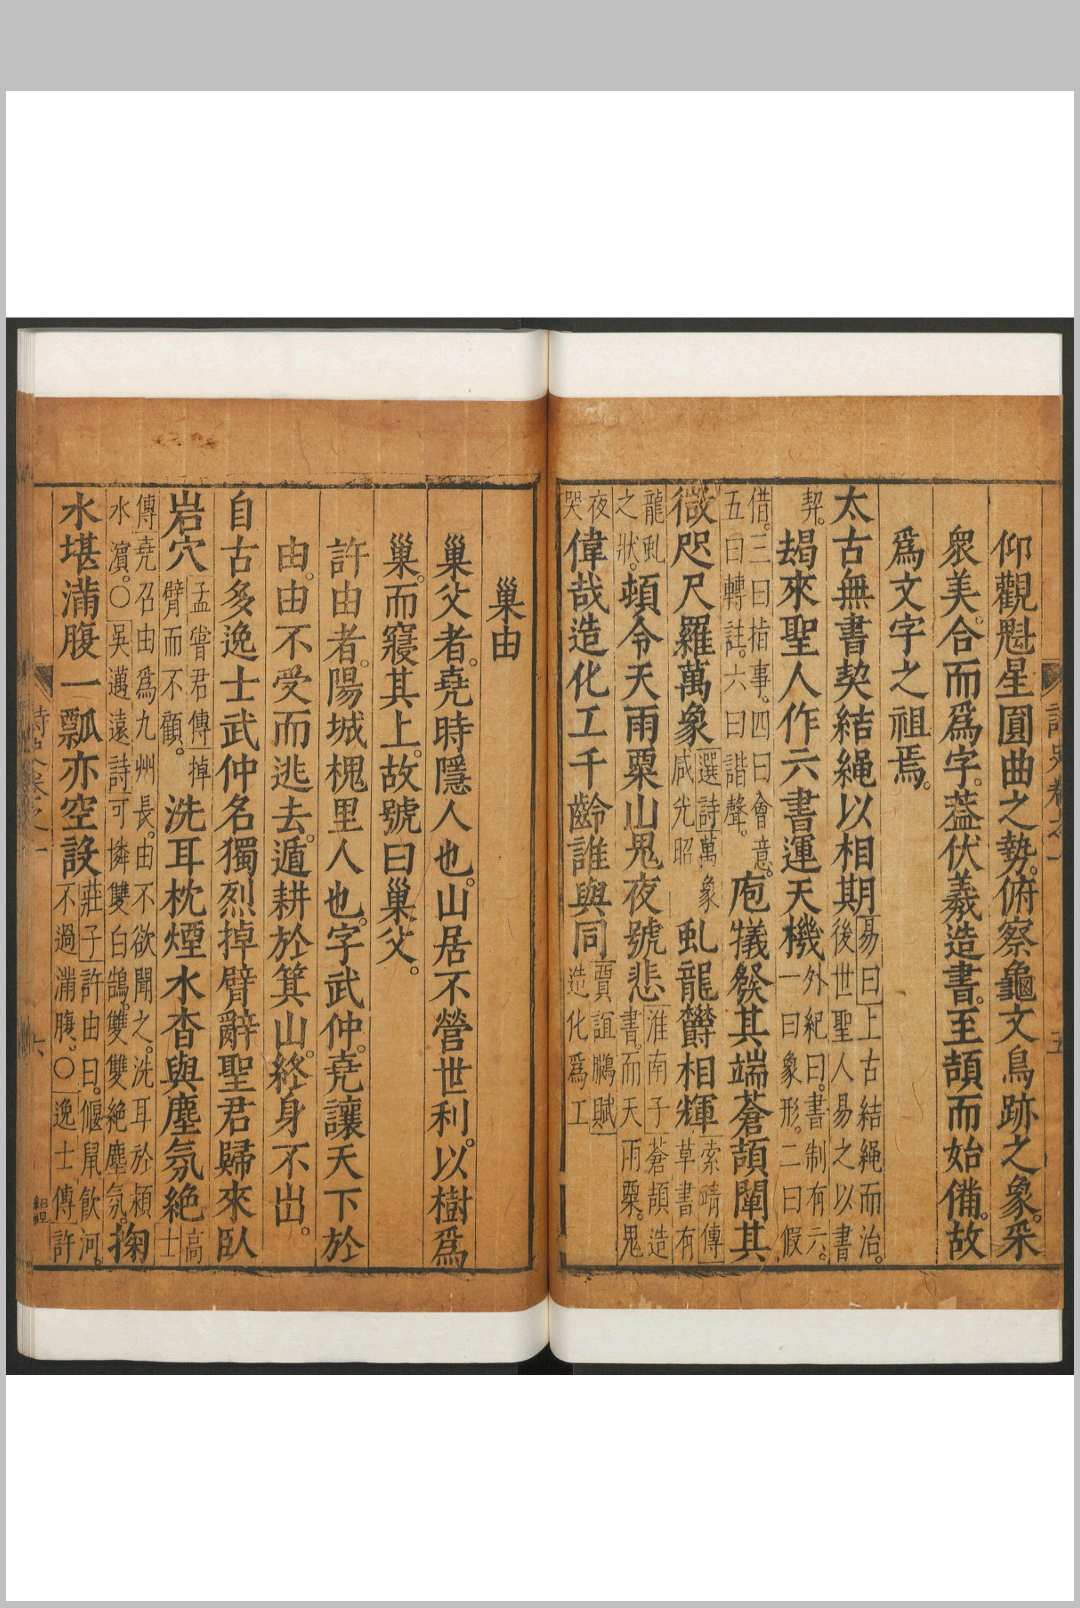 詩史卷之一 五
仰觀魁星圓曲之勢。俯察龜文鳥跡之象。采
衆美。合而爲字。葢伏羲造書。至頡而始備。故
爲文字之祖焉。
太古無書契結繩以相期易曰上古結繩而治。後世聖人易之以書
契。朅來聖人作六書運天機外紀曰。書制有六。一曰象形。二曰假
借。三曰指事。四曰會意。五曰轉註。六曰諧聲。庖犧發其端蒼頡闡其
微咫尺羅萬象選詩萬象咸光昭虬龍欝相輝索靖傳草書有
龍虬之狀。頓令天雨粟山鬼夜號悲淮南子蒼頡造書。而天雨粟。鬼
夜哭偉哉造化工千齡誰與同賈誼鵩賦造化爲工
巢由
巢父者。堯時隱人也。山居不營世利。以樹爲
巢。而寢其上。故號曰巢父。
許由者。陽城槐里人也。字武仲。堯讓天下於
由。由不受而逃去。遁耕於箕山。終身不出。
自古多逸士武仲名獨烈掉臂辭聖君歸來臥
岩穴孟甞君傳掉臂而不顧。洗耳枕煙水杳與塵氛絶高士
傳堯召由爲九州長。由不欲聞之。洗耳於潁水濵。○吳邁遠詩可憐雙白鵠。雙雙絶塵氛。掬
水堪滿腹一瓢亦空設莊子許由曰。偃鼠飲河。不過滿腹。○逸士傳許
詩史卷之一 六